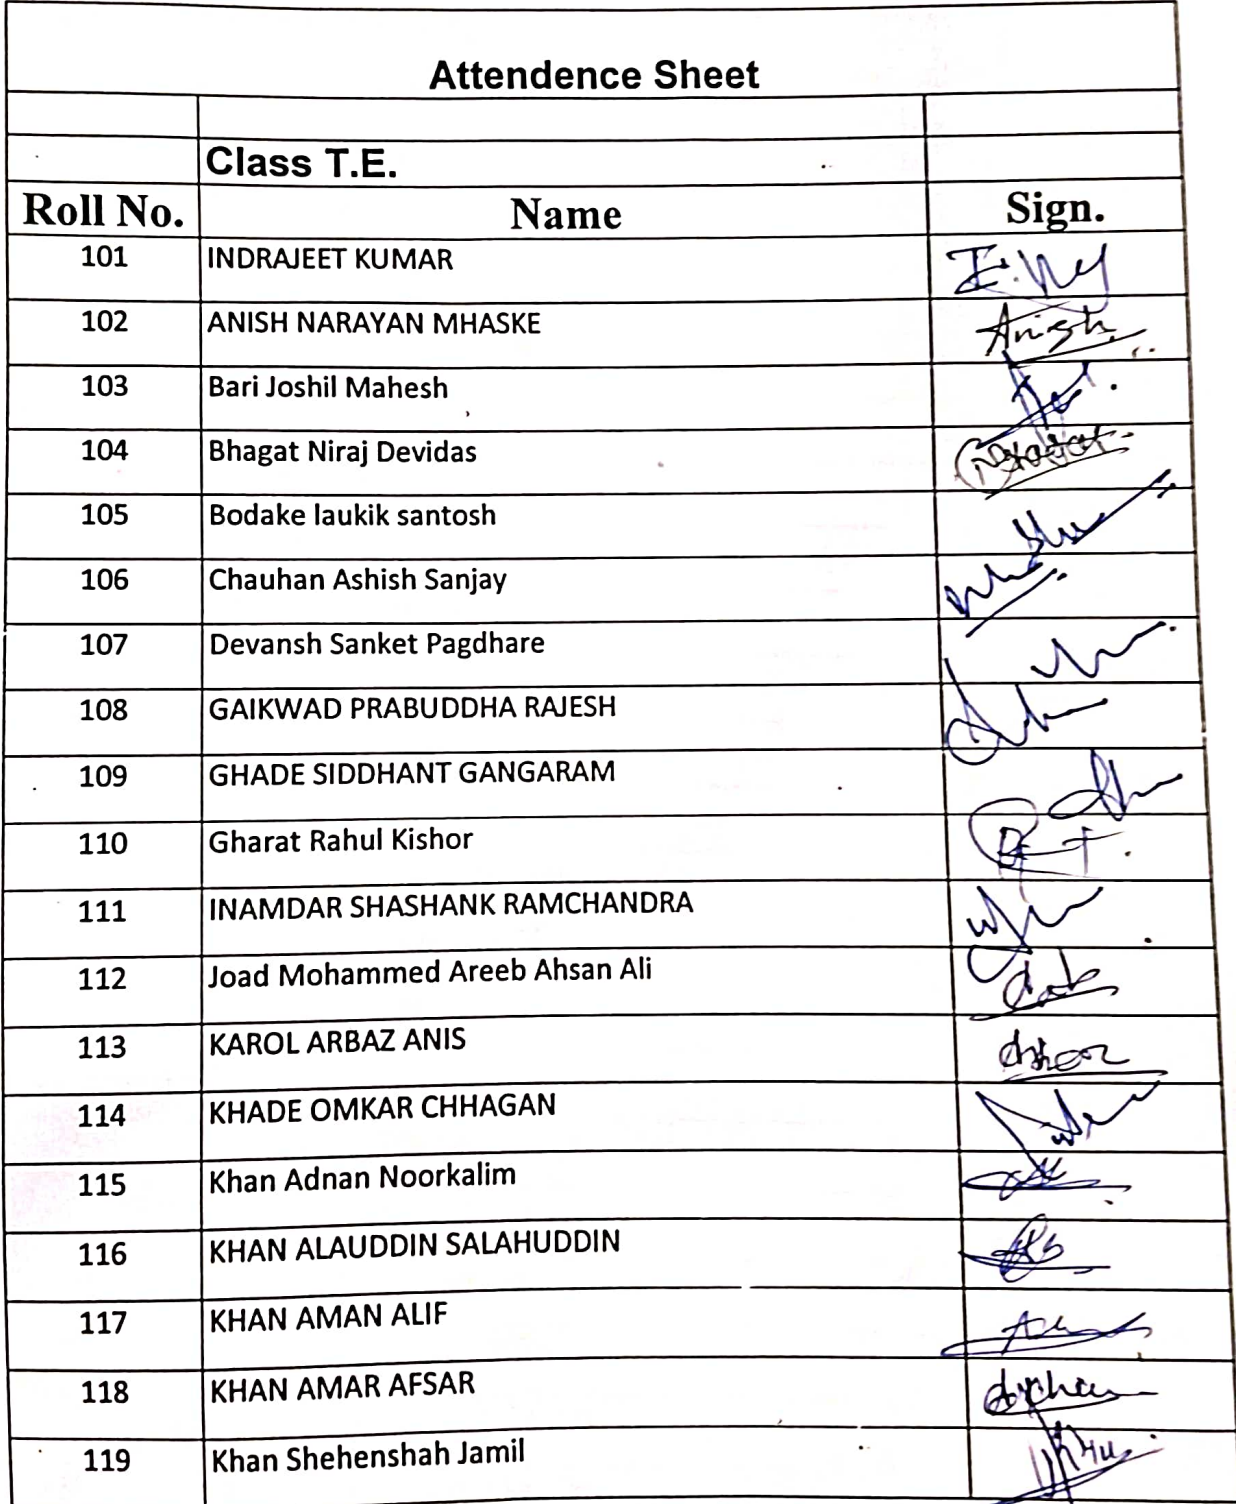 Attendence Sheet
Class T.E.
Roll No. Name Sign.
101 INDRAJEET KUMAR
102 ANISH NARAYAN MHASKE Anish
103 Bari Joshil Mahesh
104 Bhagat Niraj Devidas
105 Bodake laukik santosh
106 Chauhan Ashish Sanjay
107 Devansh Sanket Pagdhare
108 GAIKWAD PRABUDDHA RAJESH
109 GHADE SIDDHANT GANGARAM
110 Gharat Rahul Kishor
111 INAMDAR SHASHANK RAMCHANDRA
112 Joad Mohammed Areeb Ahsan Ali
113 KAROL ARBAZ ANIS
114 KHADE OMKAR CHHAGAN
115 Khan Adnan Noorkalim
116 KHAN ALAUDDIN SALAHUDDIN
117 KHAN AMAN ALIF
118 KHAN AMAR AFSAR
119 Khan Shehenshah Jamil